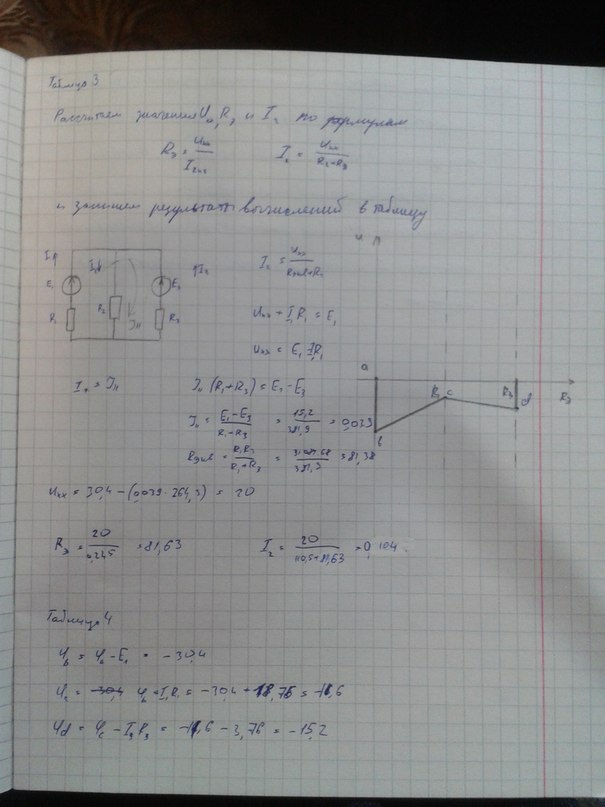 Таблица 3
Рассчитаем значения Uхх, Rэ и I₂ по формулам
Rэ = Uхх / I2кз    I₂ = Uхх / (R₂+Rэ)
и запишем результаты вычислений в таблицу
I₁ I₂ E₁ R₁ R₂ Iн E₃ R₃
I₂ = Uхх / (Rэкв+R₂)
Uхх + I₁R₁ = E₁
Uхх = E₁ - I₁R₁
a b R₁ c R₃ d Rэ
I₁ = Iн    Iн (R₁+R₃) = E₁ - E₃
Iн = (E₁-E₃) / (R₁+R₃) = 15,2 / 381,9 = 0,039
Rэкв = R₁R₃ / (R₁+R₃) = 31081,68 / 381,9 = 81,38
Uхх = 30,4 - (0,039 · 264,3) = 20
Rэ = 20 / 0,245 = 81,63    I₂ = 20 / (110,5+81,63) = 0,104
Таблица 4
φb = φa - E₁ = -30,4
φc = φb + I₁R₁ = -30,4 + 18,76 = -11,6
φd = φc - I₃R₃ = -11,6 - 3,76 = -15,2